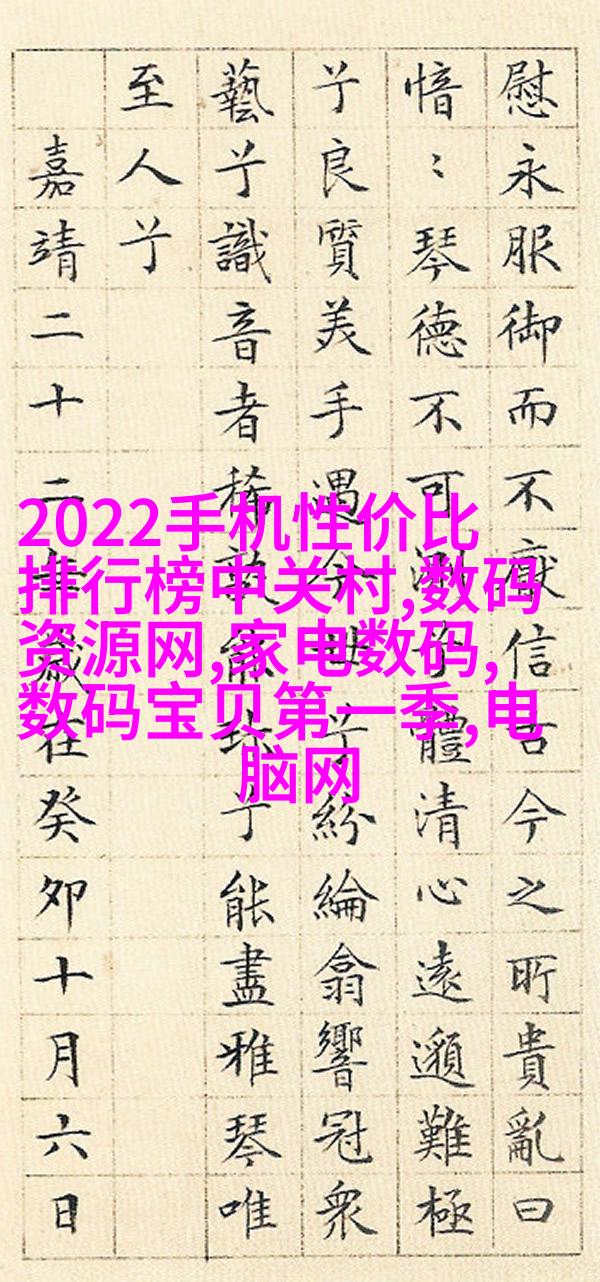 慰永服御而不猒信古今之所貴亂曰
愔〻琴德不可測兮體清心遠邈難極
兮良質美手遇今世兮紛綸翕響冠衆
藝兮識音者稀孰能珎兮能盡雅琴唯
至人兮
嘉靖二十二年歲在癸卯十月六日
2022手机性价比
排行榜中关村,数码
资源网,家电数码,
数码宝贝第一季,电
脑网